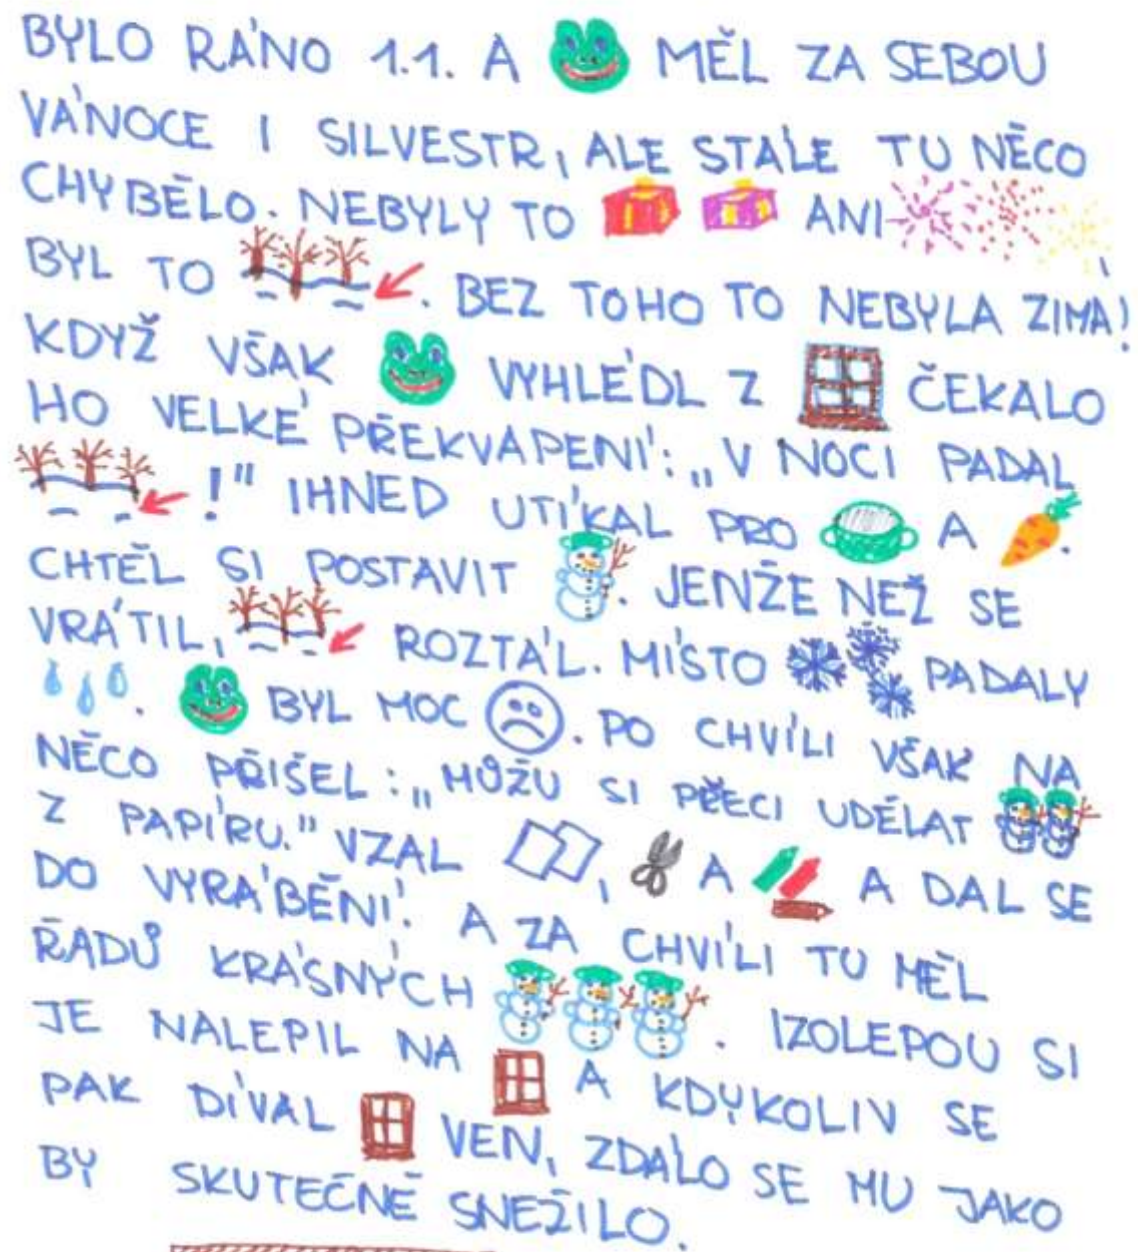 BYLO RÁNO 1.1. A MĚL ZA SEBOU
VÁNOCE I SILVESTR, ALE STÁLE TU NĚCO
CHYBĚLO. NEBYLY TO ANI
BYL TO . BEZ TOHO TO NEBYLA ZIMA!
KDYŽ VŠAK VYHLÉDL Z ČEKALO
HO VELKÉ PŘEKVAPENÍ: „V NOCI PADAL
!" IHNED UTÍKAL PRO A .
CHTĚL SI POSTAVIT . JENŽE NEŽ SE
VRÁTIL, ROZTÁL. MÍSTO PADALY
. BYL MOC . PO CHVÍLI VŠAK NA
NĚCO PŘIŠEL: „MŮŽU SI PŘECI UDĚLAT
Z PAPÍRU." VZAL , A A DAL SE
DO VYRÁBĚNÍ. A ZA CHVÍLI TU MĚL
ŘADŮ KRÁSNÝCH . IZOLEPOU SI
JE NALEPIL NA A KDYKOLIV SE
PAK DÍVAL VEN, ZDÁLO SE MU JAKO
BY SKUTEČNĚ SNĚŽILO.